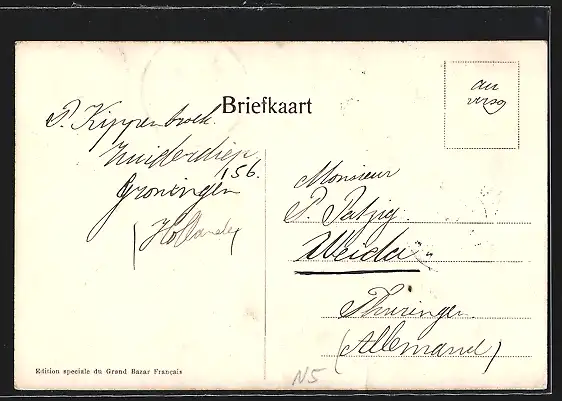 Briefkaart
au
verso
P. Kippenbroek
Zuiderdiep
156.
Groningen
(Hollande)
Monsieur
P. Patzig.
Weida
Thuringen
(Allemand)
Edition speciale du Grand Bazar Français
N5